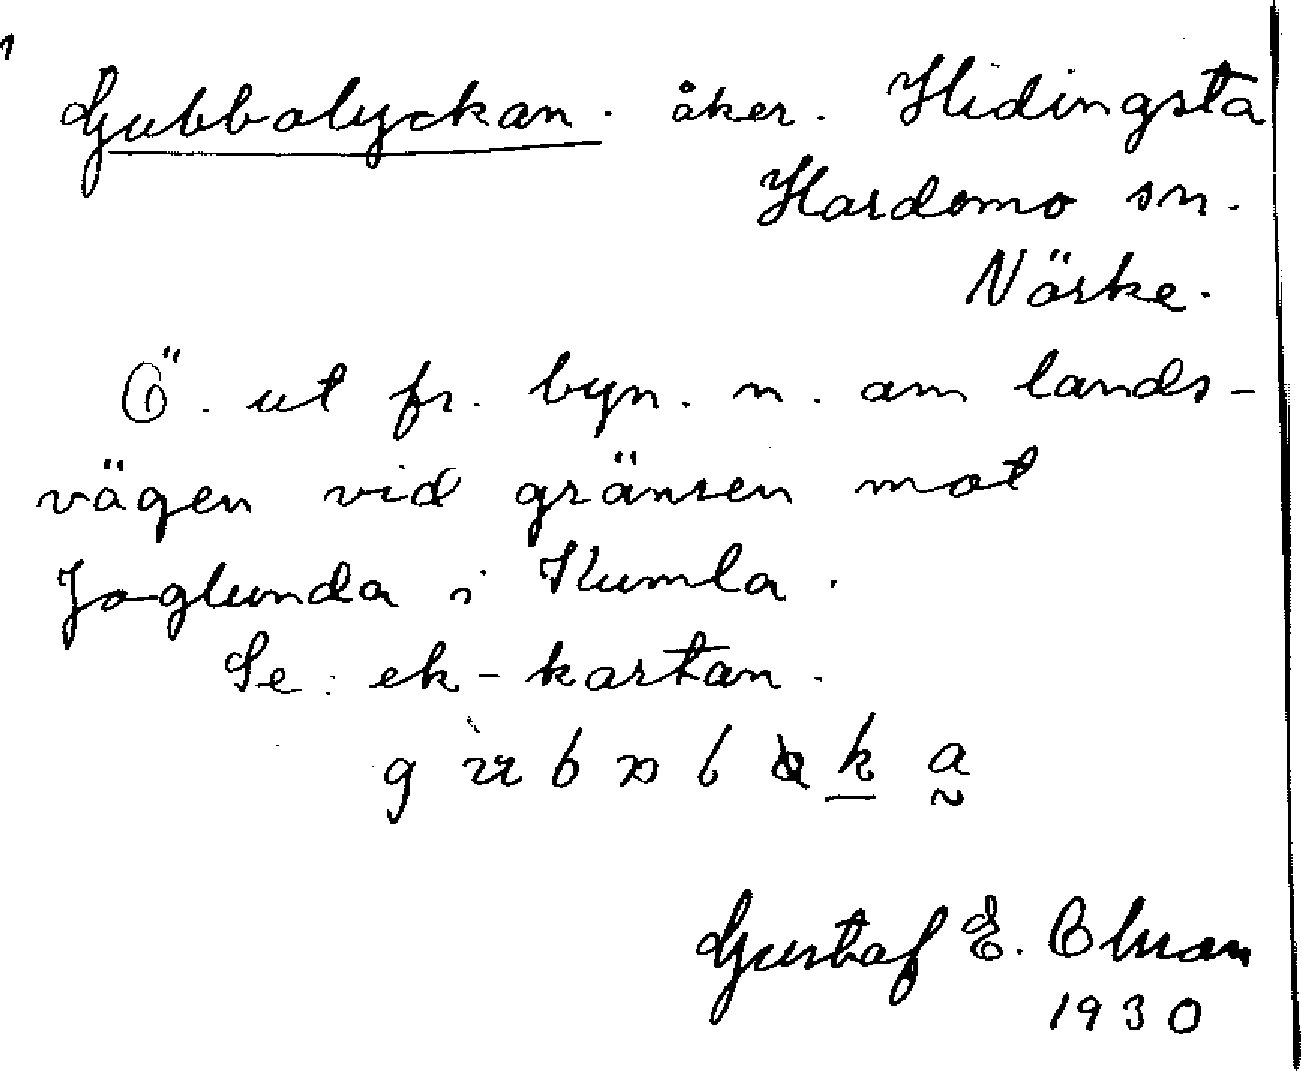 Gubbalyckan. åker. Hidingsta
Hardemo sn.
Närke.
Ö. ut fr. byn. n. om lands-
vägen vid gränsen mot
Joglunda i Kumla.
Se: ek-kartan.
Gustaf E. Olsson
1930